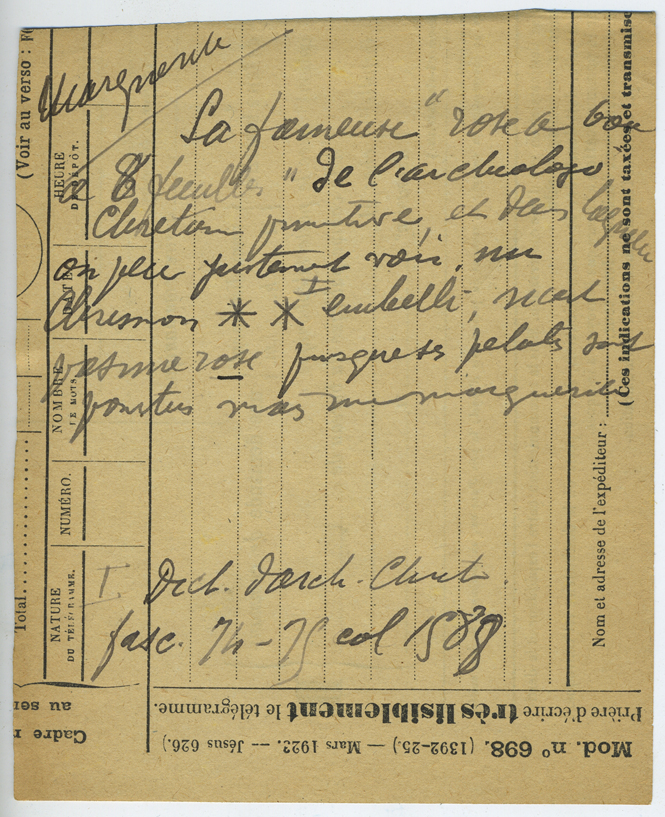 Marguerite
La fameuse "rose a 6 ou
a 8 feuilles" de l'archeologie
Chretienne primitive, et dans laquelle
on peut justement voir, un
Chrismon * * I embelli, n'est
pas une rose puisque ses petales sont
pointus mais une marguerite
I Dict. d'arch. Chret.
fasc. 74-75 col 1588
(Voir au verso : 
HEURE
DE DÉPÔT.
DATE
NOMBRE
DE MOTS.
NUMÉRO.
NATURE
DU TÉLÉGRAMME.
Total
(Ces indications ne sont taxées et transmises
Nom et adresse de l'expéditeur :
Prière d'écrire très lisiblement le télégramme.
Mod. n° 698. (1392-25.) — Mars 1923. — Jésus 626.)
Cadre
au